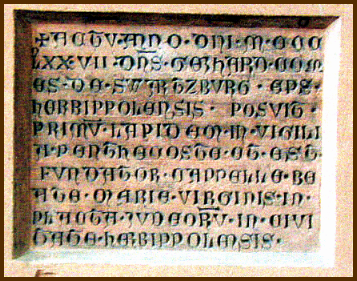 +ACTU·ANNO·DNI·M·CCC
LXX·VII·DN̄S·GERHARD·COM
ES·DE·SWARTZBURG·EPS·
HERBIPPOLENSIS·POSVIT·
PRIMV̄·LAPIDEM·IN·VIGILI
A·PENTHECOSTE·ET·EST·
FUNDATOR·CAPPELLE·BE
ATE·MARIE·VIRGINIS·IN·
PLACEA·IUDEORV̄·IN·CIVI
TATE·HERBIPPOLENSIS·